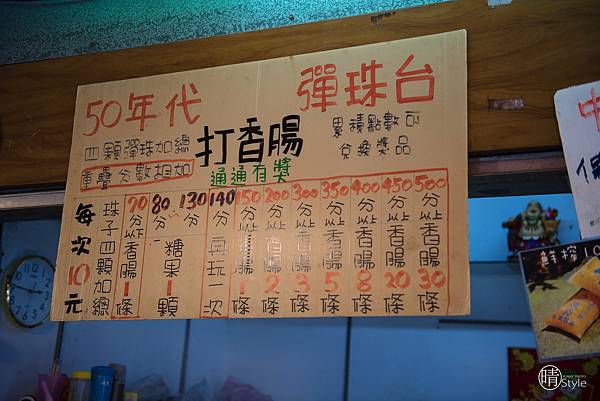 50年代 彈珠台
四顆彈珠加總
重疊分數相加
打香腸
通通有獎
累積點數可
兌換獎品
每次10元
珠子四顆加總
70分以下香腸1條
80分 130分 糖果1顆
140分再玩一次
150分以上香腸1條
200分以上香腸2條
300分以上香腸3條
350分以上香腸5條
400分以上香腸8條
450分以上香腸20條
500分以上香腸30條
晴
Style